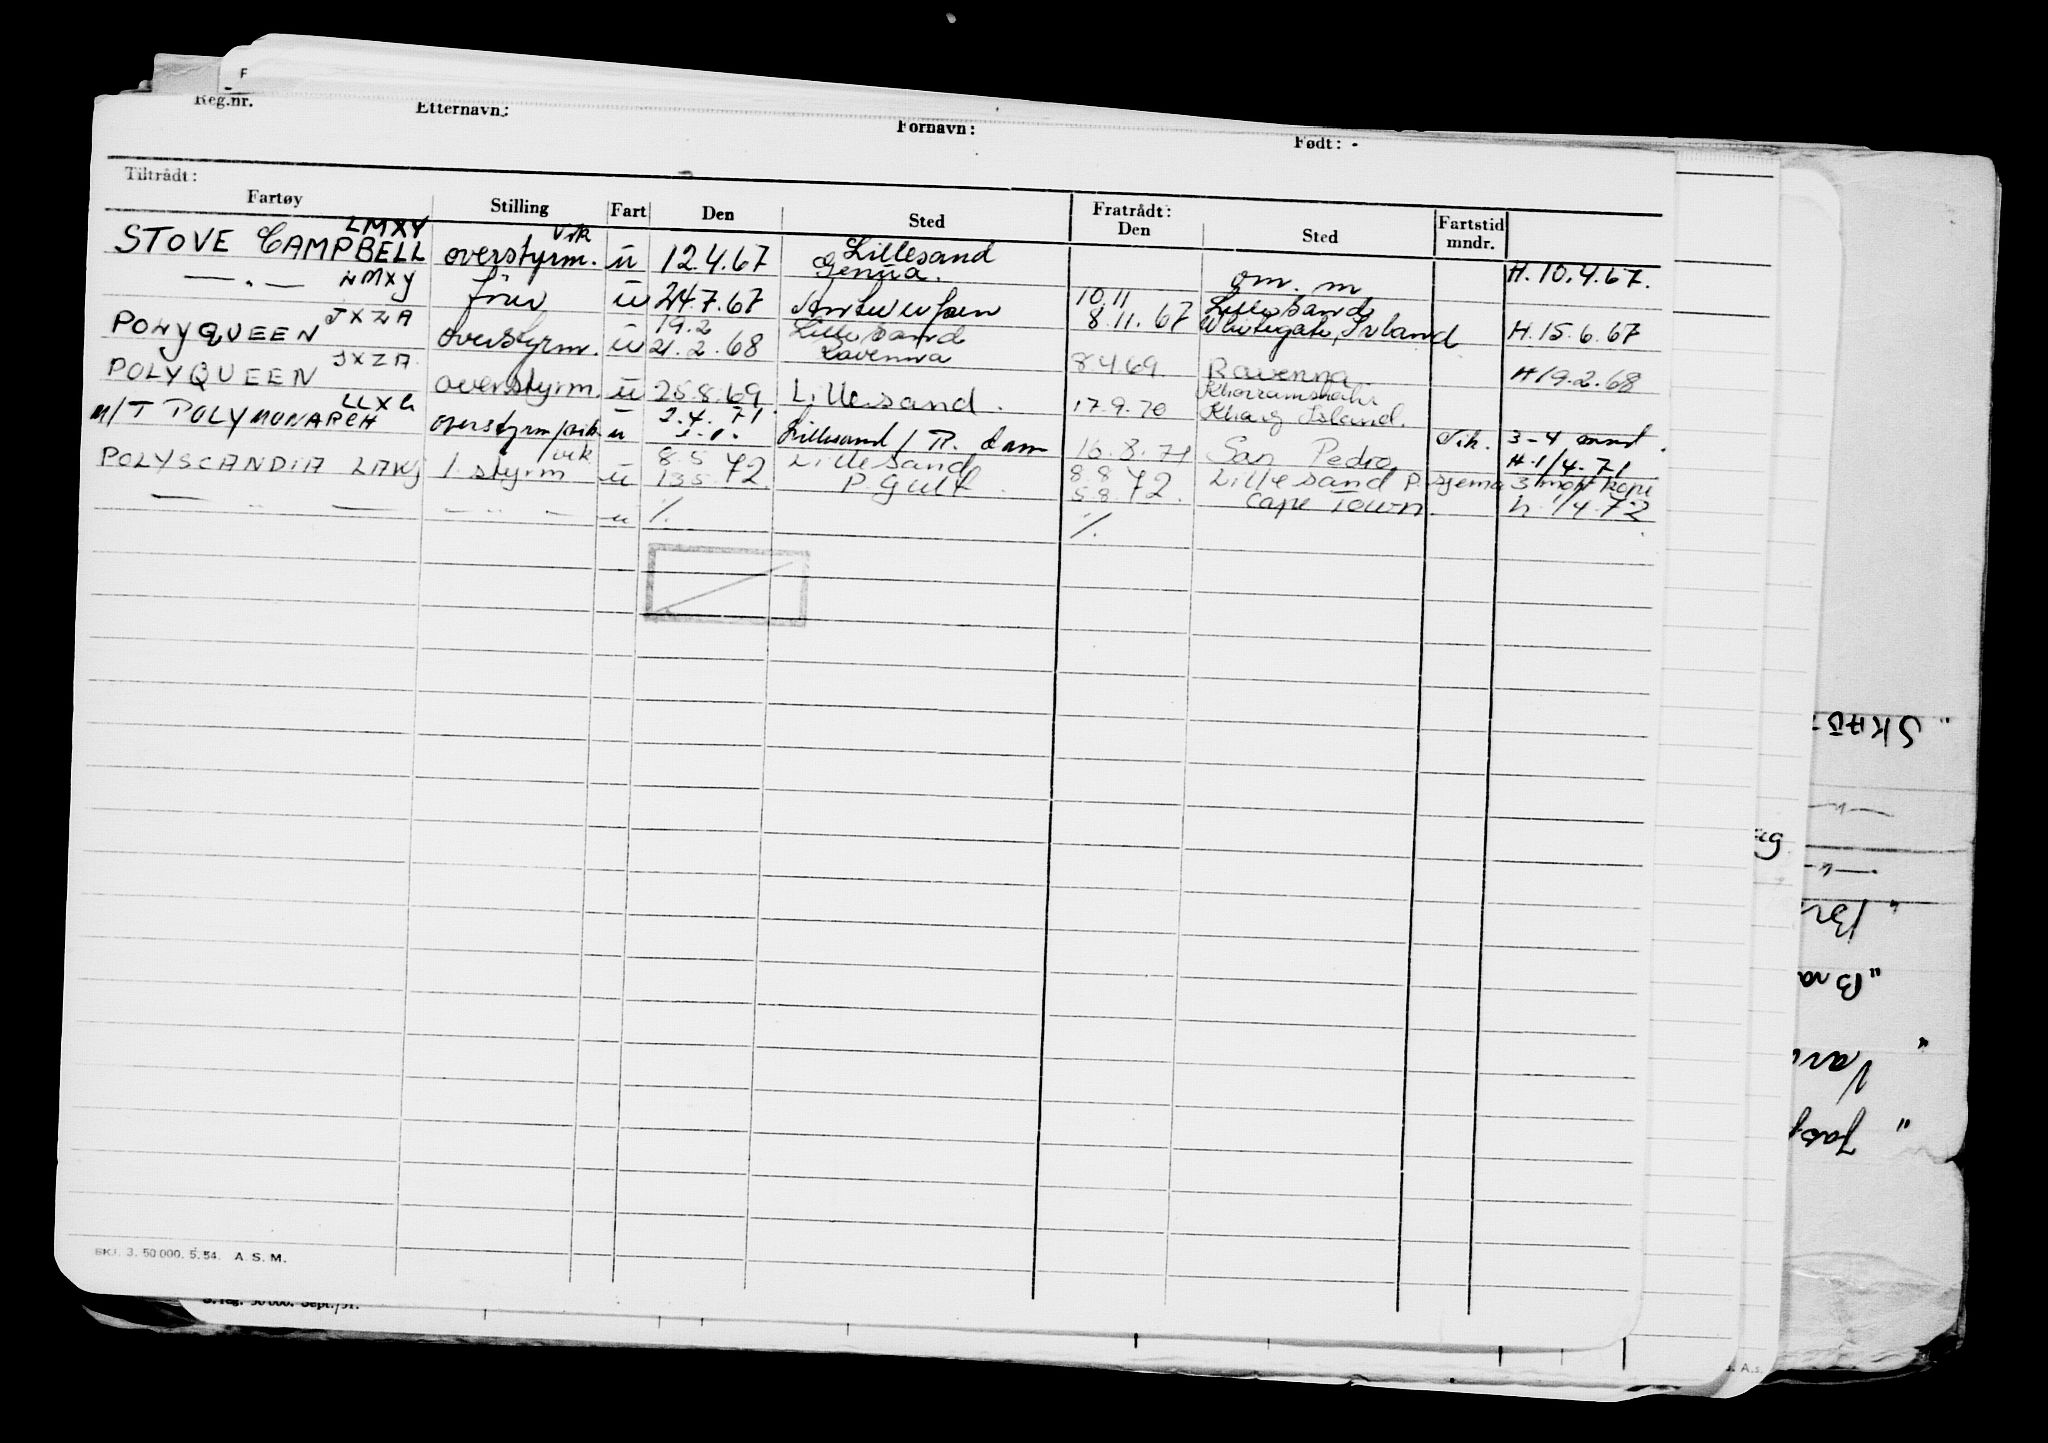 Reg.nr. Etternavn: Fornavn: Født: -
Tiltrådt: Fratrådt:
Fartøy Stilling Fart Den Sted Den Sted Fartstid mndr.
LMXY vik Lillesand
STOVE CAMPBELL overstyrm. u 12.4.67 Genua. om. m H. 10.4.67.
— " — LMXY u 24.7.67 Antwerpen 10.11 Lillesand
8.11.67 Whitegate, Irland H. 15.6.67
POLYQUEEN JXZA overstyrm. u 19.2 Lillesand
21.2.68 Ravenna 8.4.69. Ravenna H 19.2.68
POLYQUEEN JXZA overstyrm. u 25.8.69 Lillesand. 17.9.70 Khorramshahr
Kharg Island.
M/T POLYMONARCH LLXG overstyrm/vik u 2.4.71. Lillesand / R. dam 16.8.71 San Pedro. 3-4 mnd.
H. 1/4.71
POLYSCANDIA LAKJ 1 styrm vik u 8.5 Lillesand 8.8 Lillesand
13.5.72. P. Gulf. 5.8.72. Cape Town. h. 1/4.72
— " — — " — u %. %.
BKI. 3. 50.000. 5. 54. A. S. M.
S.reg. 50 000. Sept./51.